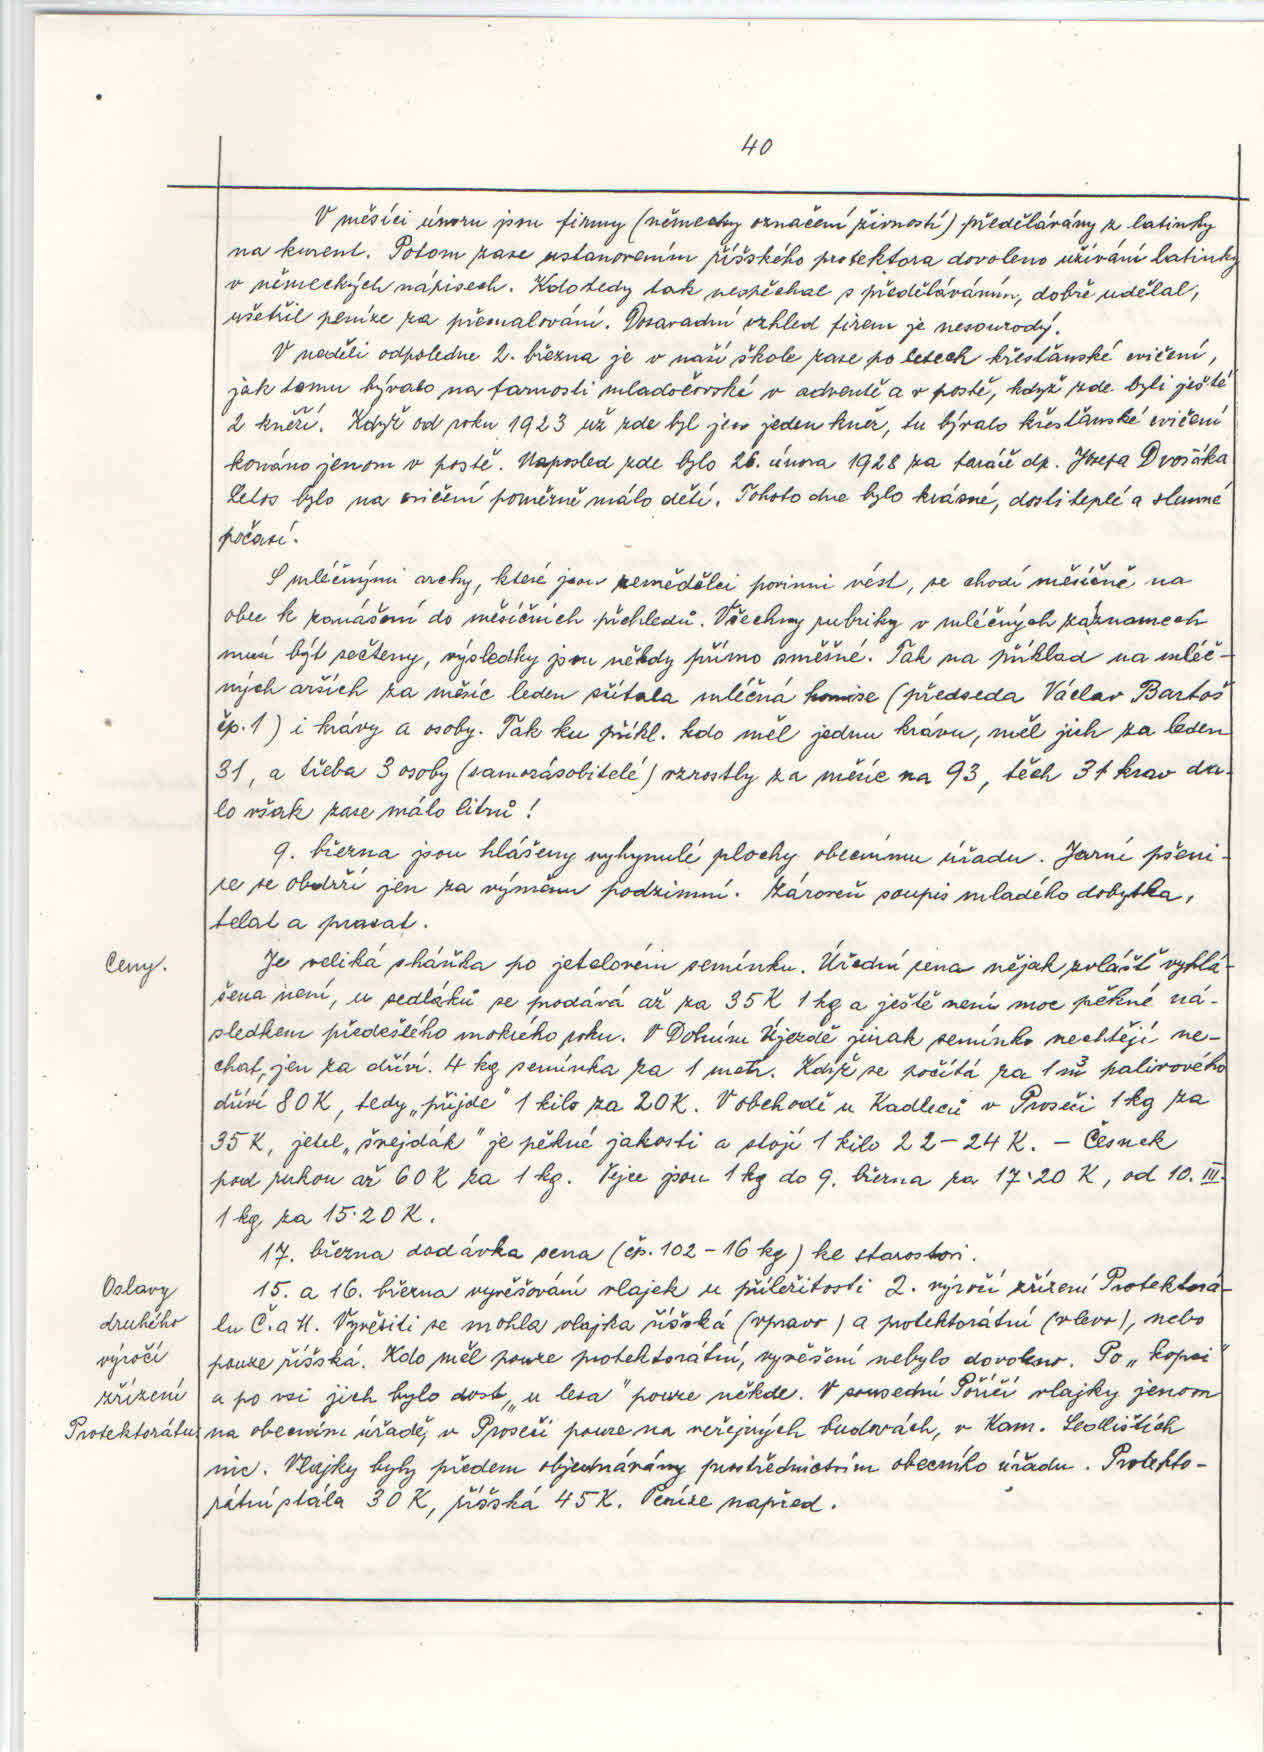 40
V měsíci únoru jsou firmy (německy označení živností) předělávány z latinky
na kurent. Potom zase ustanovením říšského protektora dovoleno užívání latinky
v německých nápisech. Kdo tedy tak nespěchal s předěláváním, dobře udělal,
ušetřil peníze za přemalování. Dosavadní vzhled firem je nesourodý.
V neděli odpoledne 2. března je v naší škole zase po letech křesťanské cvičení,
jak tomu bývalo na farnosti mladočovské v adventě a v postě, když zde byli ještě
2 kněží. Když od roku 1923 už zde byl jen jeden kněz, tu bývalo křesťanské cvičení
konáno jenom v postě. Naposled zde bylo 26. února 1928 za faráře dp. Josefa Dvořáka
letos bylo na cvičení poměrně málo dětí. Tohoto dne bylo krásné, dosti teplé a slunné
počasí.
S mléčnými archy, které jsou zemědělci povinni vést, se chodí měsíčně na
obec k zanášení do měsíčních přehledů. Všechny rubriky v mléčných záznamech
musí být sečteny, výsledky jsou někdy přímo směšné. Tak na příklad na mléč-
ných arších za měsíc leden sčítala mléčná komise (předseda Václav Bartoš
čp. 1) i krávy a osoby. Tak ku příkl. kdo měl jednu krávu, měl jich za leden
31, a třeba 3 osoby (samozásobitelé) vzrostly za měsíc na 93, těch 31 krav da-
lo však zase málo litrů!
9. března jsou hlášeny vyhynulé plochy obecnímu úřadu. Jarní pšeni-
ce se obdrží jen za výměnu podzimní. Zároveň soupis mladého dobytka,
telat a prasat.
Ceny.
Je veliká sháňka po jetelovém semínku. Úřední cena nějak zvlášť vyhlá-
šena není, u sedláků se prodává až za 35 K 1 kg a ještě není moc pěkné ná-
sledkem předešlého mokrého roku. V Dolním Újezdě jinak semínko nechtějí ne-
chat, jen za dříví. 4 kg semínka za 1 metr. Když se počítá za 1 m³ palivového
dříví 80 K, tedy „přijde" 1 kilo za 20 K. V obchodě u Kadleců v Proseči 1 kg za
35 K, jetel „švejdák" je pěkné jakosti a stojí 1 kilo 22 – 24 K. – Česnek
pod rukou až 60 K za 1 kg. Vejce jsou 1 kg do 9. března za 17·20 K, od 10. III.
1 kg za 15·20 K.
17. března dodávka sena (čp. 102 – 16 kg) ke starostovi.
Oslavy
druhého
výročí
zřízení
Protektorátu
15. a 16. března vyvěšování vlajek u příležitosti 2. výročí zřízení Protektorá-
tu Č. a M. Vyvěsiti se mohla vlajka říšská (vpravo) a protektorátní (vlevo), nebo
pouze říšská. Kdo měl pouze protektorátní, vyvěšení nebylo dovoleno. Po „kopci"
a po vsi jich bylo dost, „u lesa" pouze někde. V sousední Poříčí vlajky jenom
na obecním úřadě, v Proseči pouze na veřejných budovách, v Kam. Sedlištích
nic. Vlajky byly předem objednávány prostřednictvím obecního úřadu. Protekto-
rátní stála 30 K, říšská 45 K. Peníze napřed.